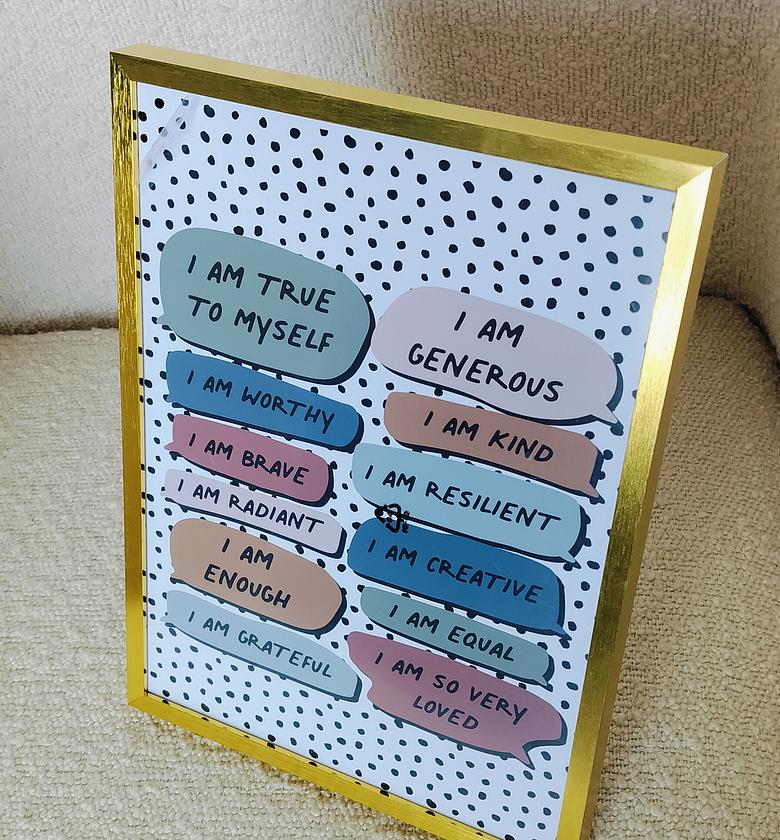 I AM TRUE
TO MYSELF
I AM WORTHY
I AM BRAVE
I AM RADIANT
I AM
ENOUGH
I AM GRATEFUL
I AM
GENEROUS
I AM KIND
I AM RESILIENT
I AM CREATIVE
I AM EQUAL
I AM SO VERY
LOVED